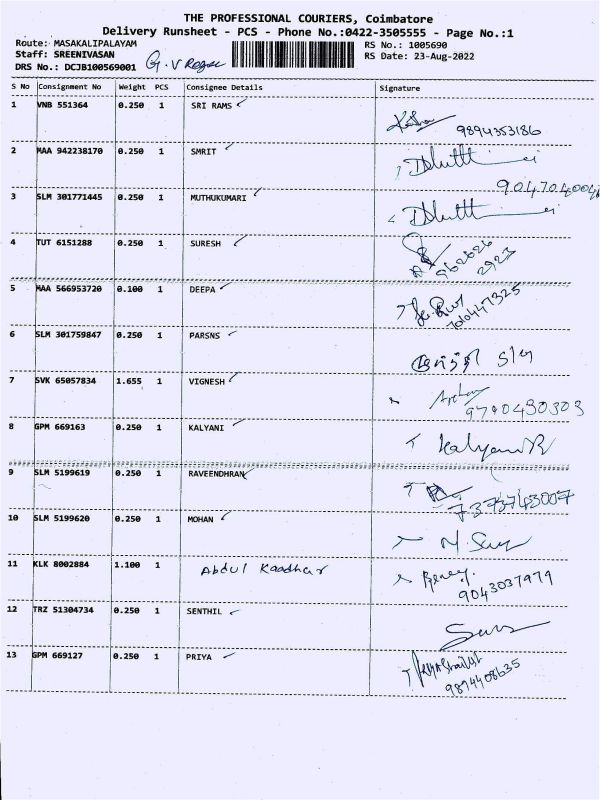 THE PROFESSIONAL COURIERS, Coimbatore
Delivery Runsheet - PCS - Phone No.:0422-3505555 - Page No.:1
Route: MASAKALIPALAYAM RS No.: 1005690
Staff: SREENIVASAN RS Date: 23-Aug-2022
DRS No.: DCJB100569001 G.V
S No Consignment No Weight PCS Consignee Details Signature
1 VNB 551364 0.250 1 SRI RAMS
9894353186
2 MAA 942238170 0.250 1 SMRIT
3 SLM 301771445 0.250 1 MUTHUKUMARI
4 TUT 6151288 0.250 1 SURESH
5 MAA 566953720 0.100 1 DEEPA
6 SLM 301759847 0.250 1 PARSNS
7 SVK 65057834 1.655 1 VIGNESH
9790430303
8 GPM 669163 0.250 1 KALYANI
9 SLM 5199619 0.250 1 RAVEENDHRAN
7373743007
10 SLM 5199620 0.250 1 MOHAN
11 KLK 8002884 1.100 1 Abdul Kaadhar
9043037979
12 TRZ 51304734 0.250 1 SENTHIL
13 GPM 669127 0.250 1 PRIYA
9894408635